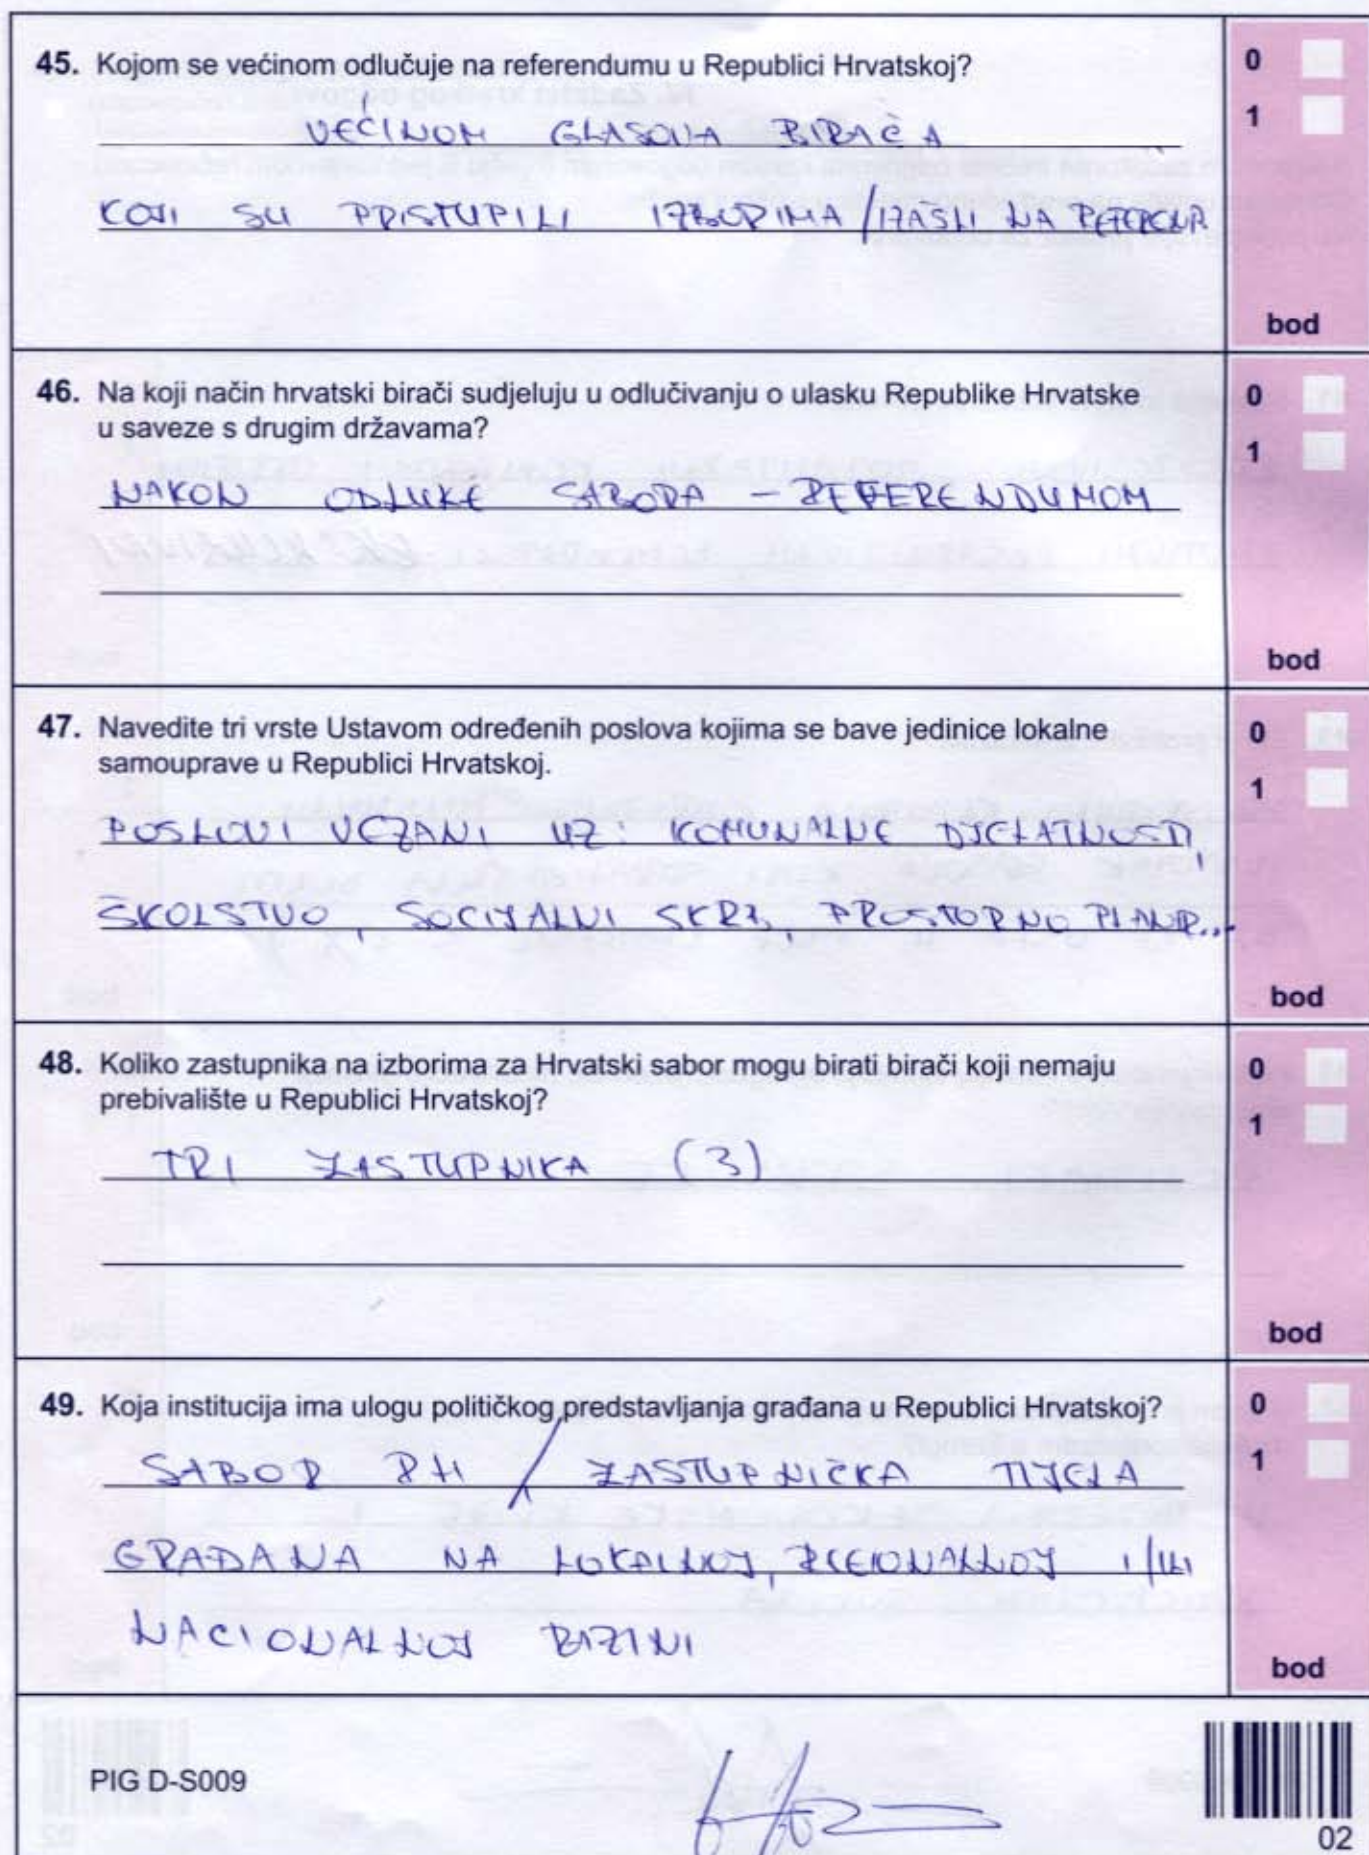 45. Kojom se većinom odlučuje na referendumu u Republici Hrvatskoj?
0
1
VEĆINOM GLASOVA BIRAČA
KOJI SU PRISTUPILI IZBORIMA/IZAŠLI NA
bod
46. Na koji način hrvatski birači sudjeluju u odlučivanju o ulasku Republike Hrvatske
u saveze s drugim državama?
0
1
NAKON ODLUKE SABORA – REFERENDUMOM
bod
47. Navedite tri vrste Ustavom određenih poslova kojima se bave jedinice lokalne
samouprave u Republici Hrvatskoj.
0
1
POSLOVI VEZANI UZ: KOMUNALNE DJELATNOSTI,
ŠKOLSTVO, SOCIJALNI SKRB, PROSTORNO PLANIR...
bod
48. Koliko zastupnika na izborima za Hrvatski sabor mogu birati birači koji nemaju
prebivalište u Republici Hrvatskoj?
0
1
TRI ZASTUPNIKA (3)
bod
49. Koja institucija ima ulogu političkog predstavljanja građana u Republici Hrvatskoj?
0
1
SABOR RH / ZASTUPNIČKA TIJELA
GRAĐANA NA LOKALNOJ, REGIONALNOJ I/ILI
NACIONALNOJ RAZINI
bod
PIG D-S009
02